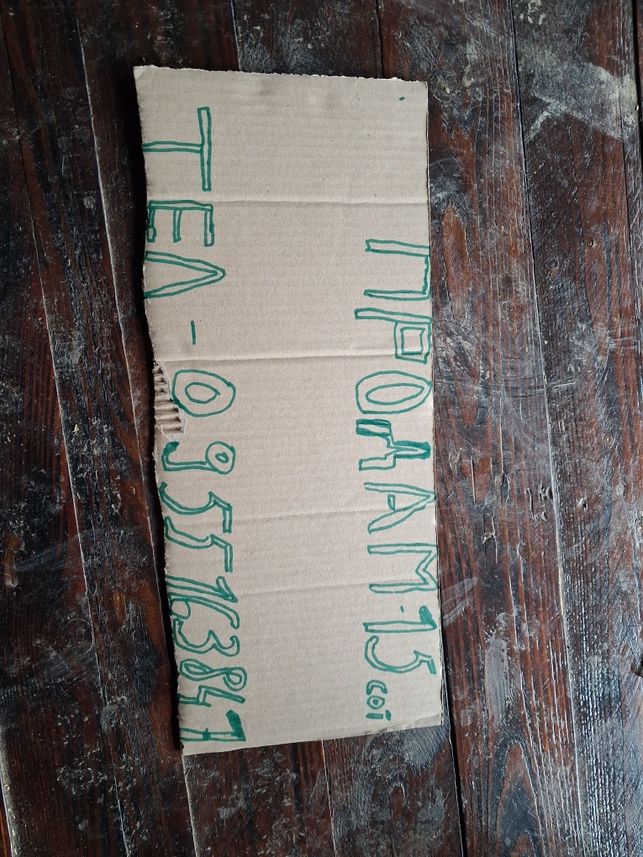 ПРОДАМ 15 сої
ТЕЛ-0955163847